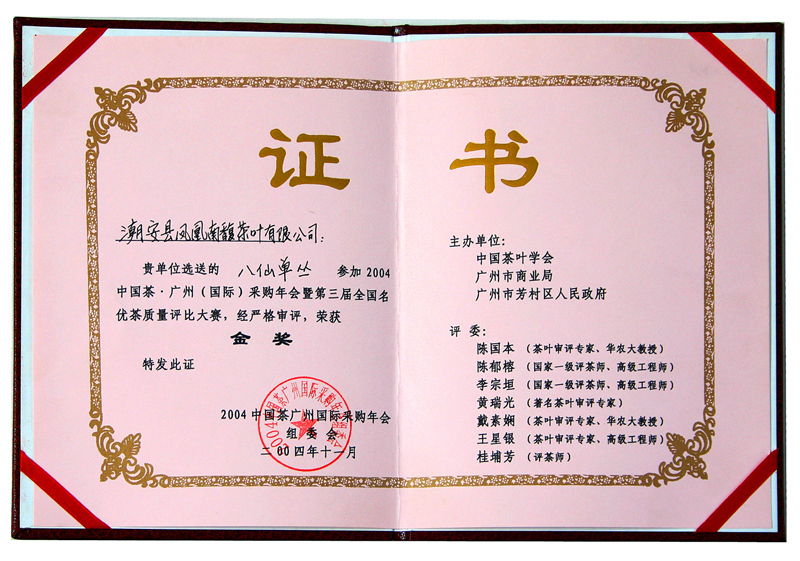 证书
潮安县凤凰南馥茶叶有限公司：
贵单位选送的 八仙单丛 参加2004
中国茶·广州（国际）采购年会暨第三届全国名
优茶质量评比大赛，经严格审评，荣获
金奖
特发此证
2004中国茶广州国际采购年会
组委会
二00四年十一月
2004中国茶广州国际采购年会组委会
主办单位：
中国茶叶学会
广州市商业局
广州市芳村区人民政府
评委：
陈国本（茶叶审评专家、华农大教授）
陈郁榕（国家一级评茶师、高级工程师）
李宗垣（国家一级评茶师、高级工程师）
黄瑞光（著名茶叶审评专家）
戴素娴（茶叶审评专家、华农大教授）
王星银（茶叶审评专家、高级工程师）
桂埔芳（评茶师）